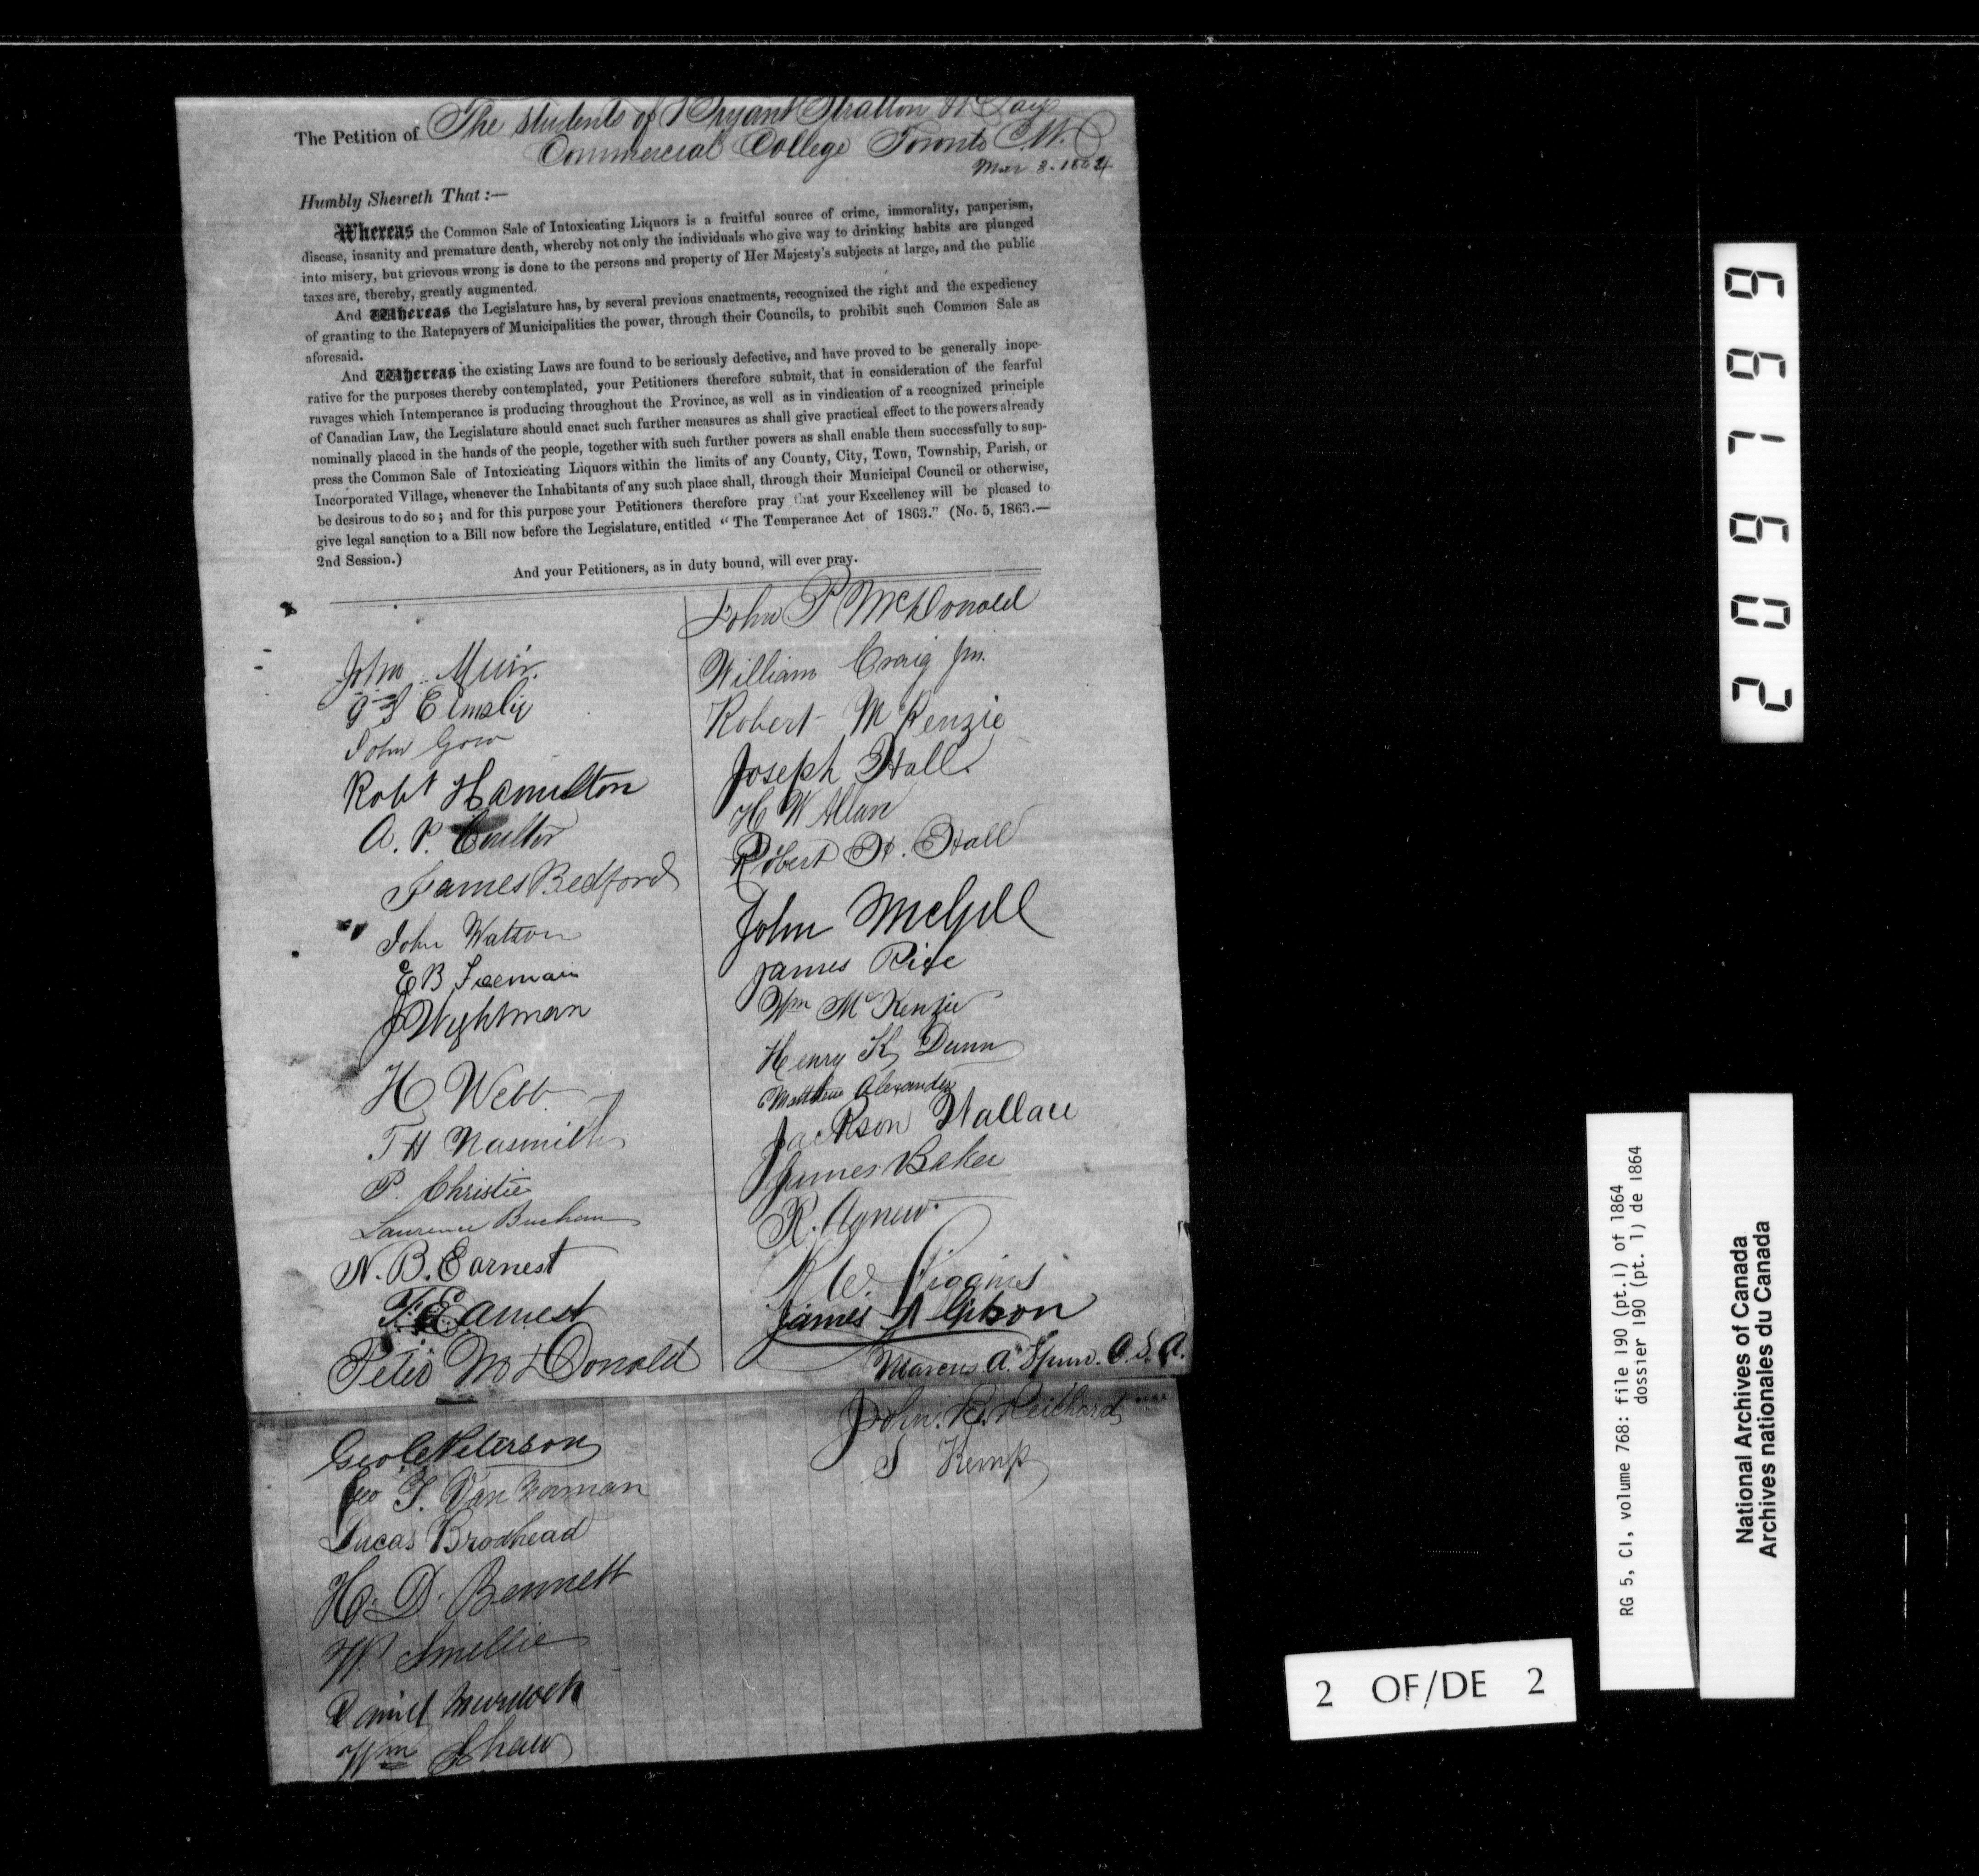 The Petition of The Students of Bryant Stratton &
Commercial College Toronto C.W.
Mar 3. 1864
Humbly Sheweth That :—
Whereas the Common Sale of Intoxicating Liquors is a fruitful source of crime, immorality, pauperism,
disease, insanity and premature death, whereby not only the individuals who give way to drinking habits are plunged
into misery, but grievous wrong is done to the persons and property of Her Majesty's subjects at large, and the public
taxes are, thereby, greatly augmented.
And Whereas the Legislature has, by several previous enactments, recognized the right and the expediency
of granting to the Ratepayers of Municipalities the power, through their Councils, to prohibit such Common Sale as
aforesaid.
And Whereas the existing Laws are found to be seriously defective, and have proved to be generally inope-
rative for the purposes thereby contemplated, your Petitioners therefore submit, that in consideration of the fearful
ravages which Intemperance is producing throughout the Province, as well as in vindication of a recognized principle
of Canadian Law, the Legislature should enact such further measures as shall give practical effect to the powers already
nominally placed in the hands of the people, together with such further powers as shall enable them successfully to sup-
press the Common Sale of Intoxicating Liquors within the limits of any County, City, Town, Township, Parish, or
Incorporated Village, whenever the Inhabitants of any such place shall, through their Municipal Council or otherwise,
be desirous to do so; and for this purpose your Petitioners therefore pray that your Excellency will be pleased to
give legal sanction to a Bill now before the Legislature, entitled "The Temperance Act of 1863." (No. 5, 1863.—
2nd Session.)
And your Petitioners, as in duty bound, will ever pray.
John Muir
Elmslie
John Gow
Robt Hamilton
A. P. Coulter
James Bedford
John Watson
E B Freeman
J Wightman
H Webb
T H Nasmith
P. Christie
Laurence Buchan
N. B. Earnest
T. Earnest
Peter McDonald
Geo C Peterson
Geo T. Van Norman
Lucas Brodhead
H. D. Bennett
W. Smellie
Daniel Murdoch
Wm Shaw
John P McDonald
William Craig jnr.
Robert McKenzie
Joseph Hall.
H W Allan
Robert H. Hall
John McGill
James
Wm McKenzie
Henry K Dunn
Matthew Alexander
Jackson Wallace
James Baker
R. Agnew.
R W.
James A Gibson
Marcus A. O.S.A.
John. B. Reichard
S Kemp
209619 6
RG 5, C1, volume 768: file 190 (pt.1) of 1864
dossier 190 (pt. 1) de 1864
National Archives of Canada
Archives nationales du Canada
2 OF/DE 2